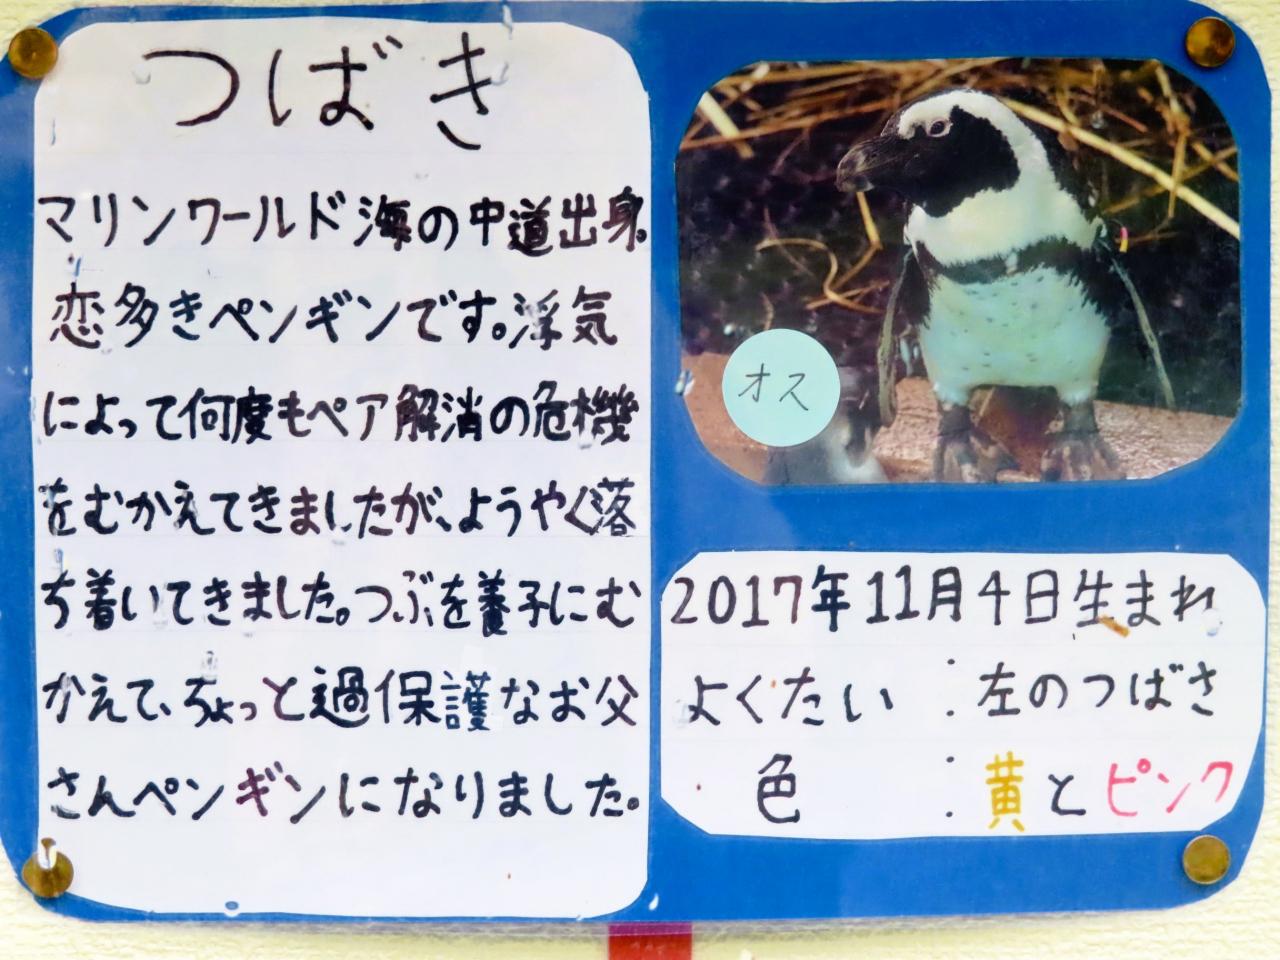 つばき
マリンワールド海の中道出身。
恋多きペンギンです。浮気
によって何度もペア解消の危機
をむかえてきましたが、ようやく落
ち着いてきました。つぶを養子にむ
かえて、ちょっと過保護なお父
さんペンギンになりました。
オス
2017年11月4日生まれ
よくたい:左のつばさ
色:黄とピンク